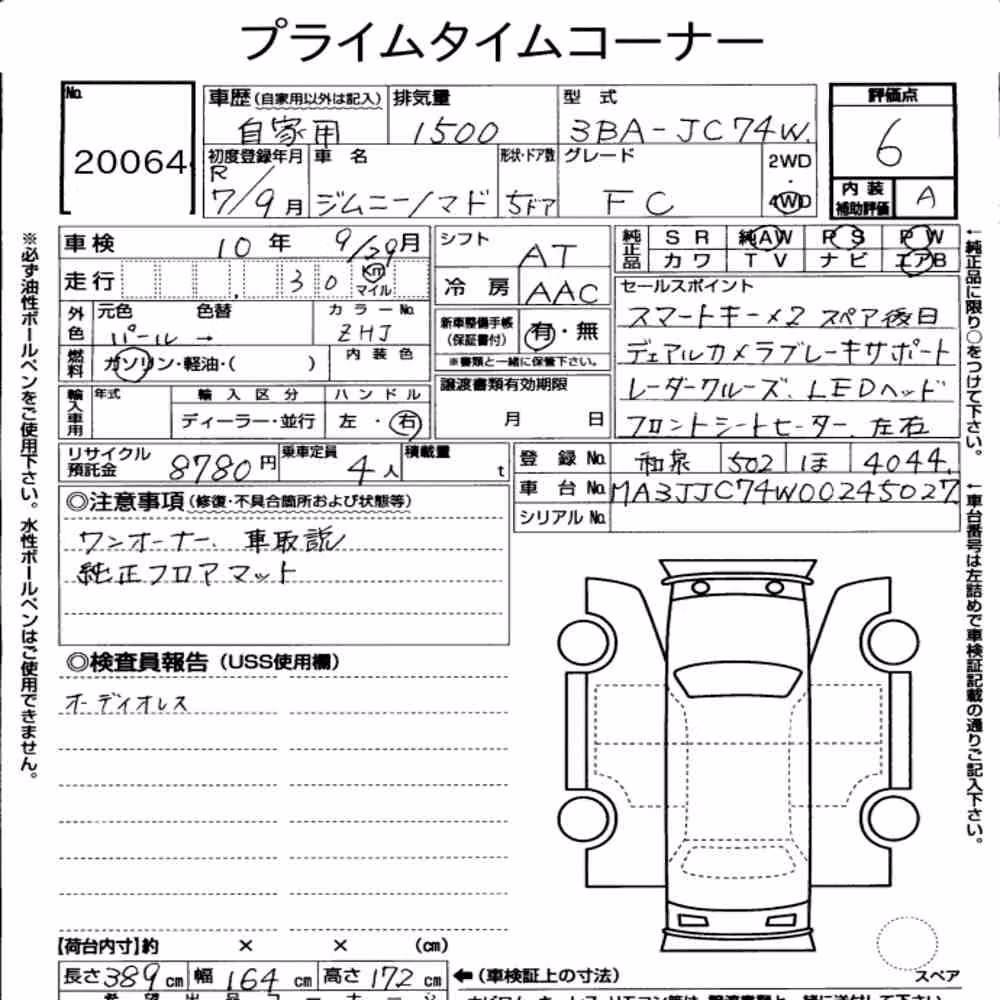 プライムタイムコーナー
No. 20064
車歴(自家用以外は記入) 自家用
排気量 1500
型式 3BA-JC74W
評価点 6
内装補助評価 A
初度登録年月 R 7/9月
車名 ジムニーノマド
形状・ドア数 5ドア
グレード FC
2WD・4WD
車検 10年 9/29月
走行 30 Km マイル
シフト AT
冷房 AAC
純正品 SR 純AW PS PW
カワ TV ナビ エアB
外色 元色 色替 パール →
カラーNo. ZHJ
燃料 ガソリン・軽油・( )
内装色
新車整備手帳(保証書付) 有・無
※書類と一緒に保管下さい。
セールスポイント
スマートキー×2 スペア後日
デュアルカメラブレーキサポート
レーダークルーズ、LEDヘッド
フロントシートヒーター、左右
輸入車用 年式 輸入区分 ディーラー・並行
ハンドル 左・右
譲渡書類有効期限 月 日
リサイクル預託金 8780円
乗車定員 4人
積載量 t
登録No. 和泉 502 ほ 4044
車台No. MA3JJC74W00245027
シリアルNo.
◎注意事項(修復・不具合箇所および状態等)
ワンオーナー、車取説
純正フロアマット
◎検査員報告(USS使用欄)
オーディオレス
【荷台内寸】約 × × (cm)
長さ389cm 幅164cm 高さ172cm
←(車検証上の寸法)
スペア
※必ず油性ボールペンをご使用下さい。水性ボールペンはご使用できません。
←純正品に限り○をつけて下さい。
←車台番号は左詰めで車検証記載の通りご記入下さい。